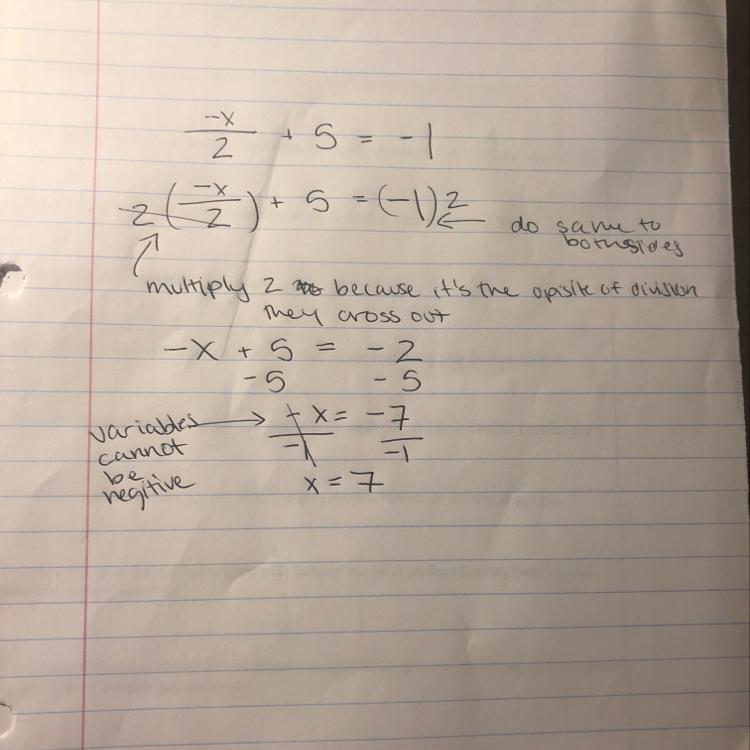 -x/2 + 5 = -1
2(-x/2) + 5 = (-1)2
do same to
both sides
multiply 2 because it's the opisite of division
they cross out
-x + 5 = -2
-5 -5
-x = -7
-1 -1
variables
cannot
be
negitive
x = 7